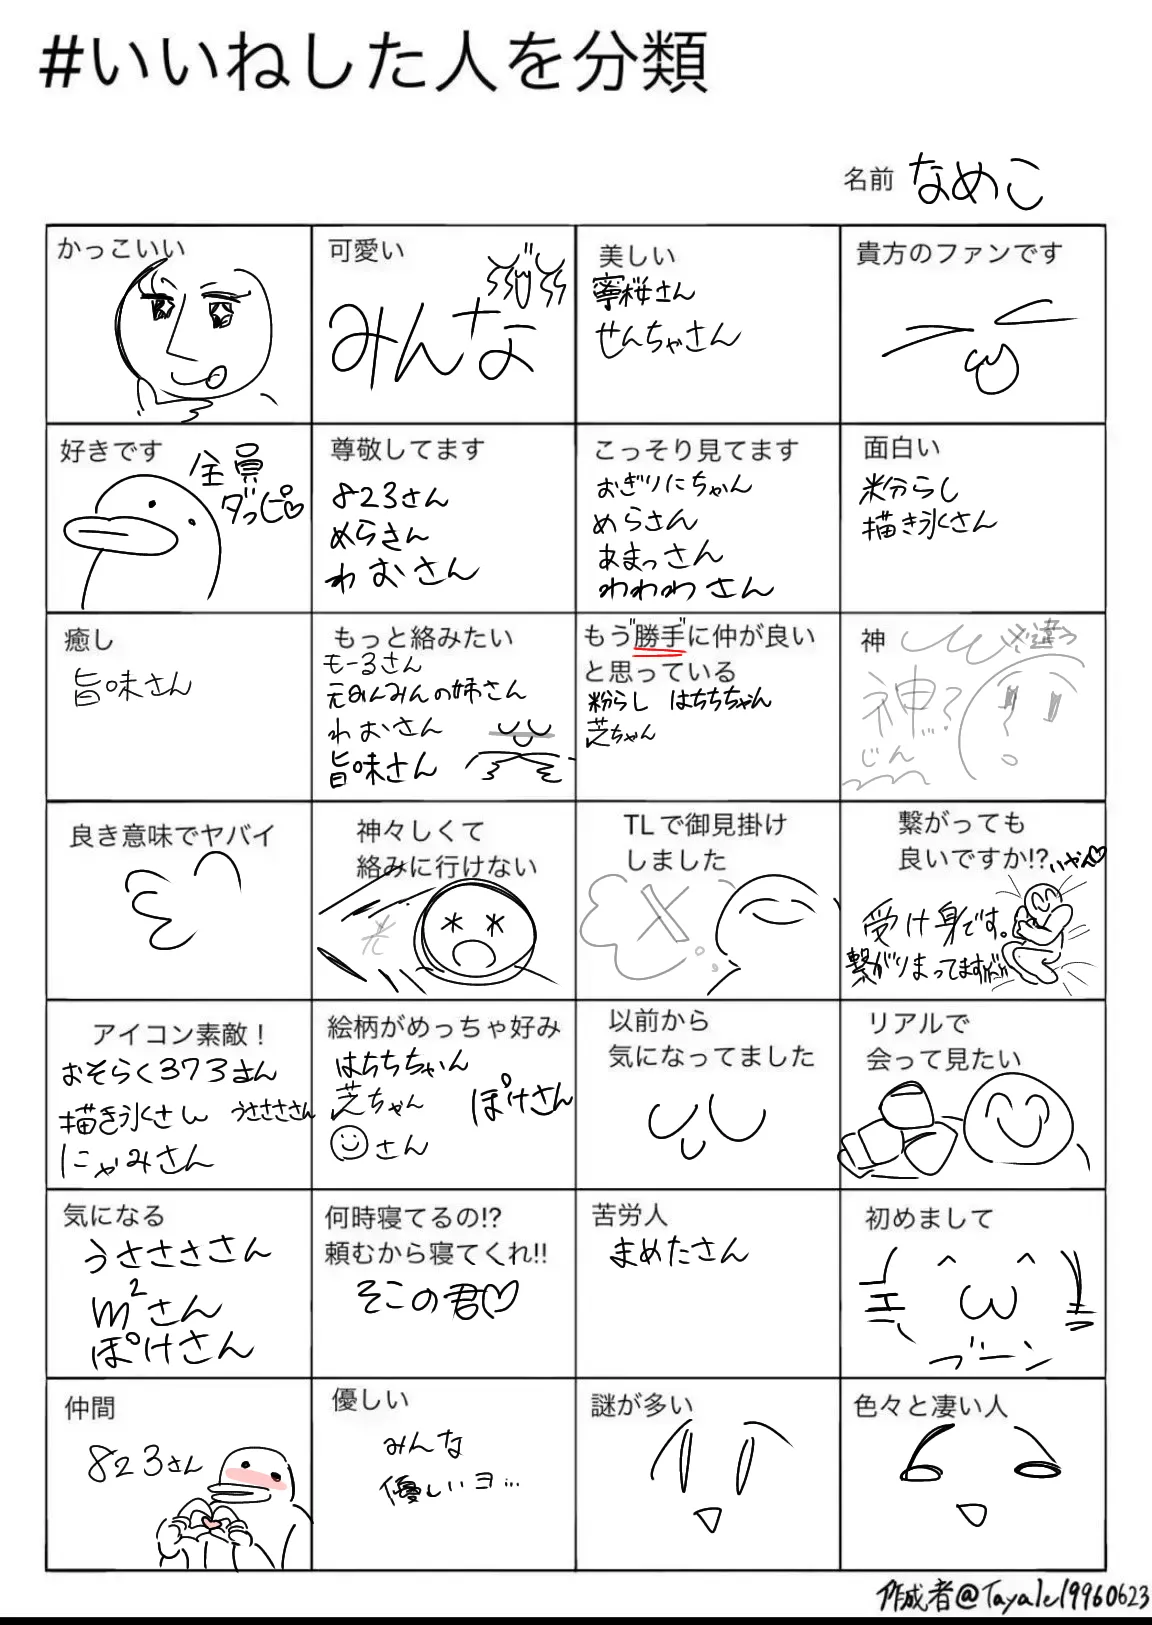 #いいねした人を分類
名前 なめこ
かっこいい
可愛い
みんな
美しい
寧桜さん
せんちゃさん
貴方のファンです
好きです
全員
ダッピ♡
尊敬してます
823さん
めらさん
わおさん
こっそり見てます
おぎりにちゃん
めらさん
あまっさん
わわわさん
面白い
粉らし
描き氷さん
癒し
旨味さん
もっと絡みたい
もーるさん
わおさん
旨味さん
もう"勝手"に仲が良い
と思っている
粉らし はちちちゃん
芝ちゃん
神
※違う
神…?
じん
良き意味でヤバイ
神々しくて
絡みに行けない
光
TLで御見掛け
しました
繋がっても
良いですか!?
いやん♡
受け身です。
繋がりまってますが
アイコン素敵！
おそらく373さん
描き氷さん うさささん
にゃみさん
絵柄がめっちゃ好み
はちちちゃん
芝ちゃん ぽけさん
さん
以前から
気になってました
リアルで
会って見たい
気になる
うさささん
m²さん
ぽけさん
何時寝てるの!?
頼むから寝てくれ!!
そこの君♡
苦労人
まめたさん
初めまして
ブーン
仲間
823さん
優しい
みんな
優しいヨ…
謎が多い
色々と凄い人
作成者@Tayale19960623